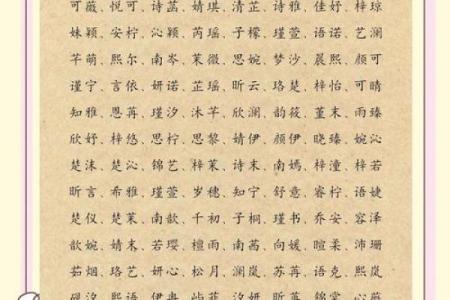 可薇、悦可、诗菡、婧琪、清芷、诗雅、佳妤、梓琼
姝颖、安柠、沁颖、芮瑶、子檬、瑾萱、语诺、艺澜
芊萌、熙尔、南岑、茉微、思婉、梦沙、晨熙、颜可
谨宁、言依、妍诺、芷瑶、昕云、珞楚、梓怡、可晴
知雅、恩苒、瑾汐、沐芊、欣澜、韵筱、堇末、雨臻
欣妤、梓悠、思柠、思黎、婧伊、颜伊、晓臻、婉沁
楚沫、楚沁、锦艺、梓茉、诗末、南嫣、梓潼、梓若
昕言、希雅、瑾萱、岁穗、知宁、舒意、睿柠、语婕
楚仪、楚茉、南歆、千初、子桐、瑾书、乔安、容泽
歆婉、婧末、若璎、檀雨、南茜、向媛、暄柔、沛珊
茹烟、珞艺、妍心、松月、澜岚、苏苒、语克、熙岚
砚汐、熙语、伊冉、屿菲、诗忆、昕苒、锦棠、心薇